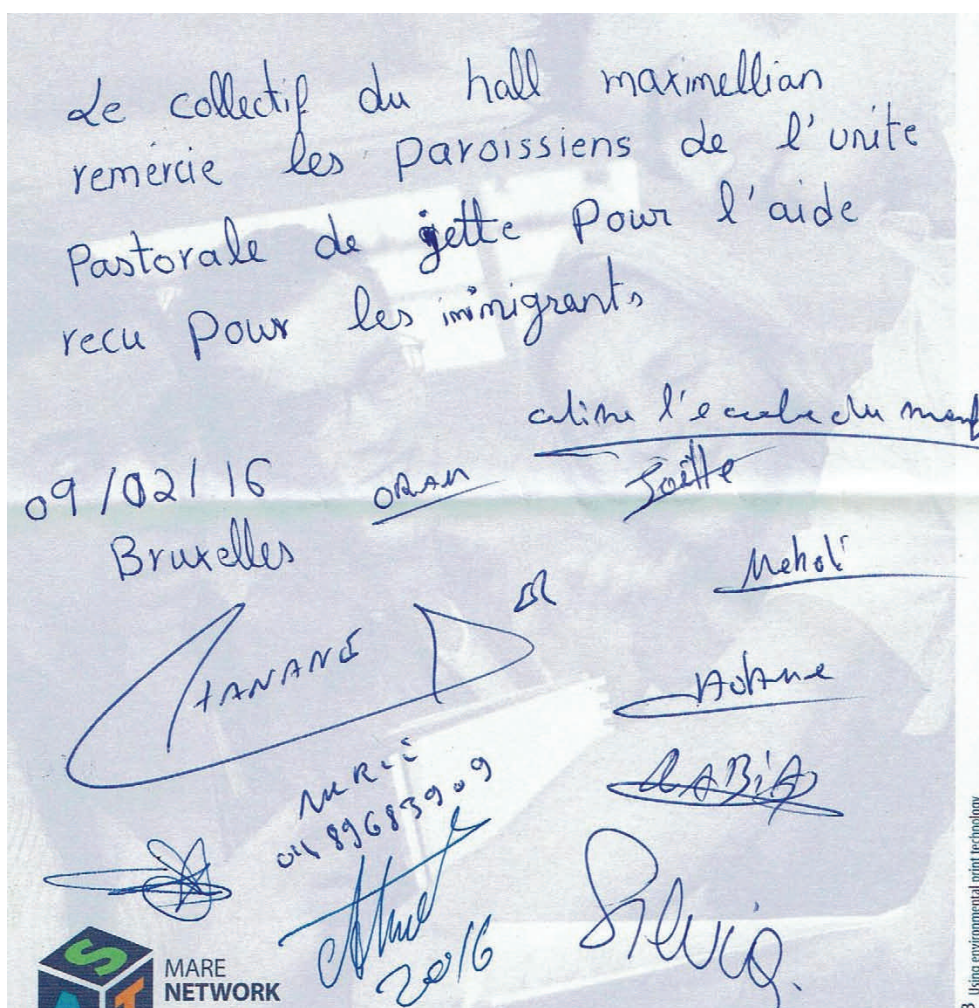 Le collectif du hall maximellian
remercie les Paroissiens de l'unite
Pastorale de jette Pour l'aide
recu Pour les immigrants
l'e du
09/02/16
ORAN
Joëlle
Bruxelles
Mehdi
HANANE
Adame
MERCi
0489683909
RABiA
2016
Silvia
MARE
NETWORK
Using environmental print technology